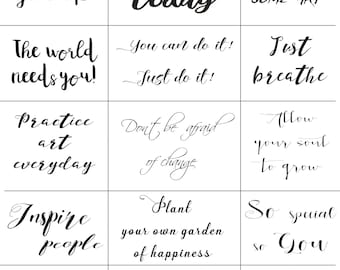 today
The world
needs you!
You can do it!
Just do it!
Just
breathe
Practice
art
everyday
Don't be afraid
of change
Allow
your soul
to grow
Inspire
people
Plant
your own garden
of happiness
So special
so You